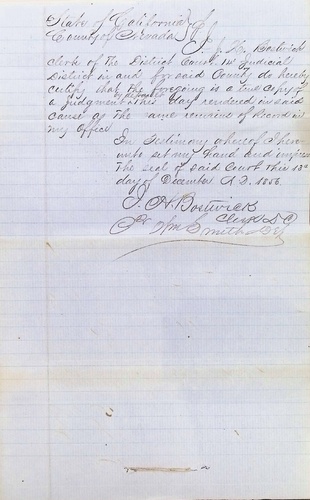 State of California }
County of Nevada }
I J. H. Bostwick
clerk of the District Court 14 Judicial
District in and for said County do hereby
certify that the foregoing is a true copy of
a judgment by default this day rendered in said
cause as the same remains of Record in
my Office
In Testimony whereof I here-
unto set my hand and impress
the seal of said Court this 13th
day of December A.D. 1856
J. H. Bostwick
Clerk D C
Per Wm Smith Dy